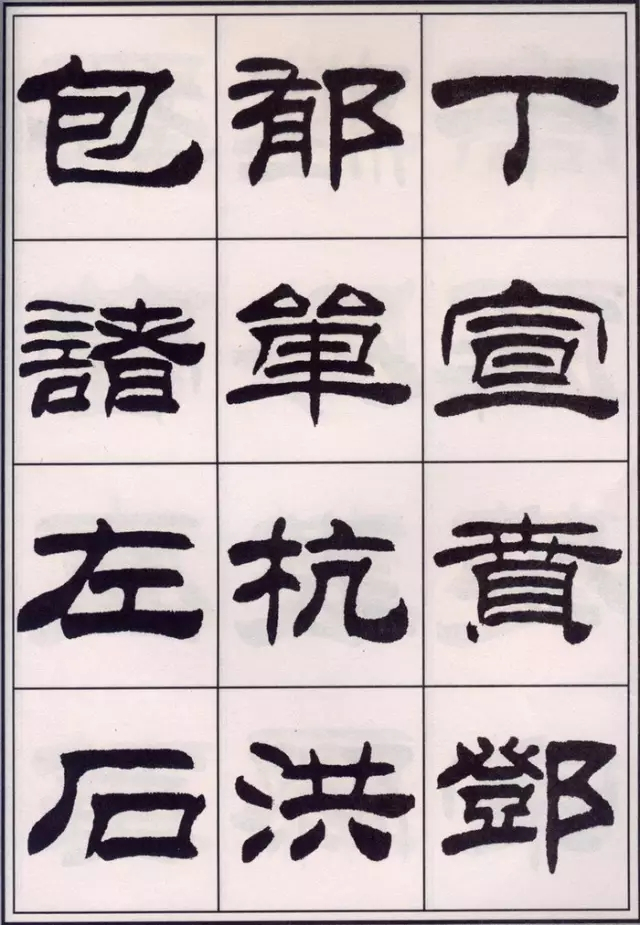 丁宣賁鄧
郁單杭洪
包諸左石